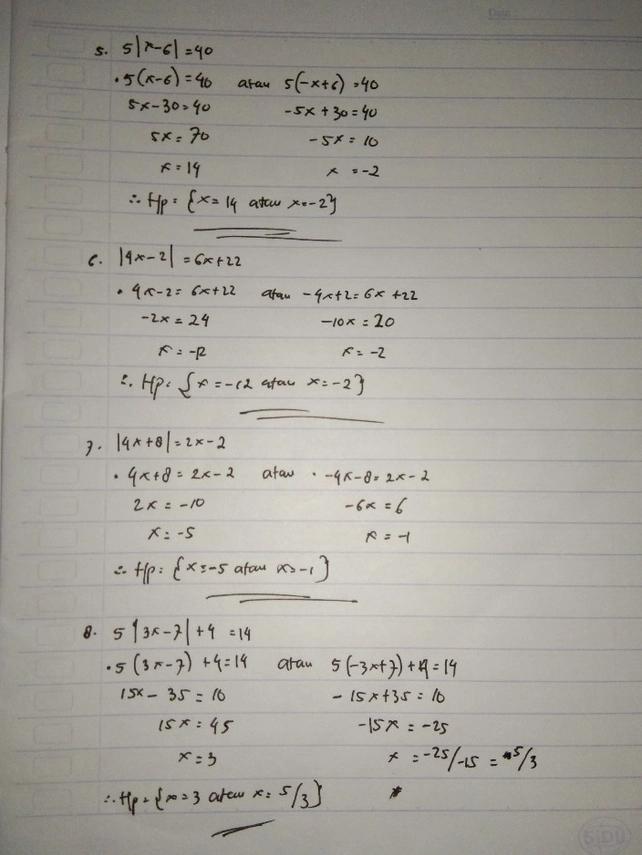 Date :
5. 5|x-6| = 40
• 5(x-6) = 40 atau 5(-x+6) = 40
5x-30 = 40 -5x+30 = 40
5x = 70 -5x = 10
x = 14 x = -2
∴ Hp = {x = 14 atau x = -2}
6. |4x-2| = 6x+22
• 4x-2 = 6x+22 atau -4x+2 = 6x+22
-2x = 24 -10x = 20
x = -12 x = -2
∴ Hp = {x = -12 atau x = -2}
7. |4x+8| = 2x-2
• 4x+8 = 2x-2 atau • -4x-8 = 2x-2
2x = -10 -6x = 6
x = -5 x = -1
∴ Hp = {x = -5 atau x = -1}
8. 5|3x-7|+4 = 14
• 5(3x-7)+4 = 14 atau 5(-3x+7)+4 = 14
15x-35 = 10 -15x+35 = 10
15x = 45 -15x = -25
x = 3 x = -25/-15 = 5/3
∴ Hp = {x = 3 atau x = 5/3}
SiDU